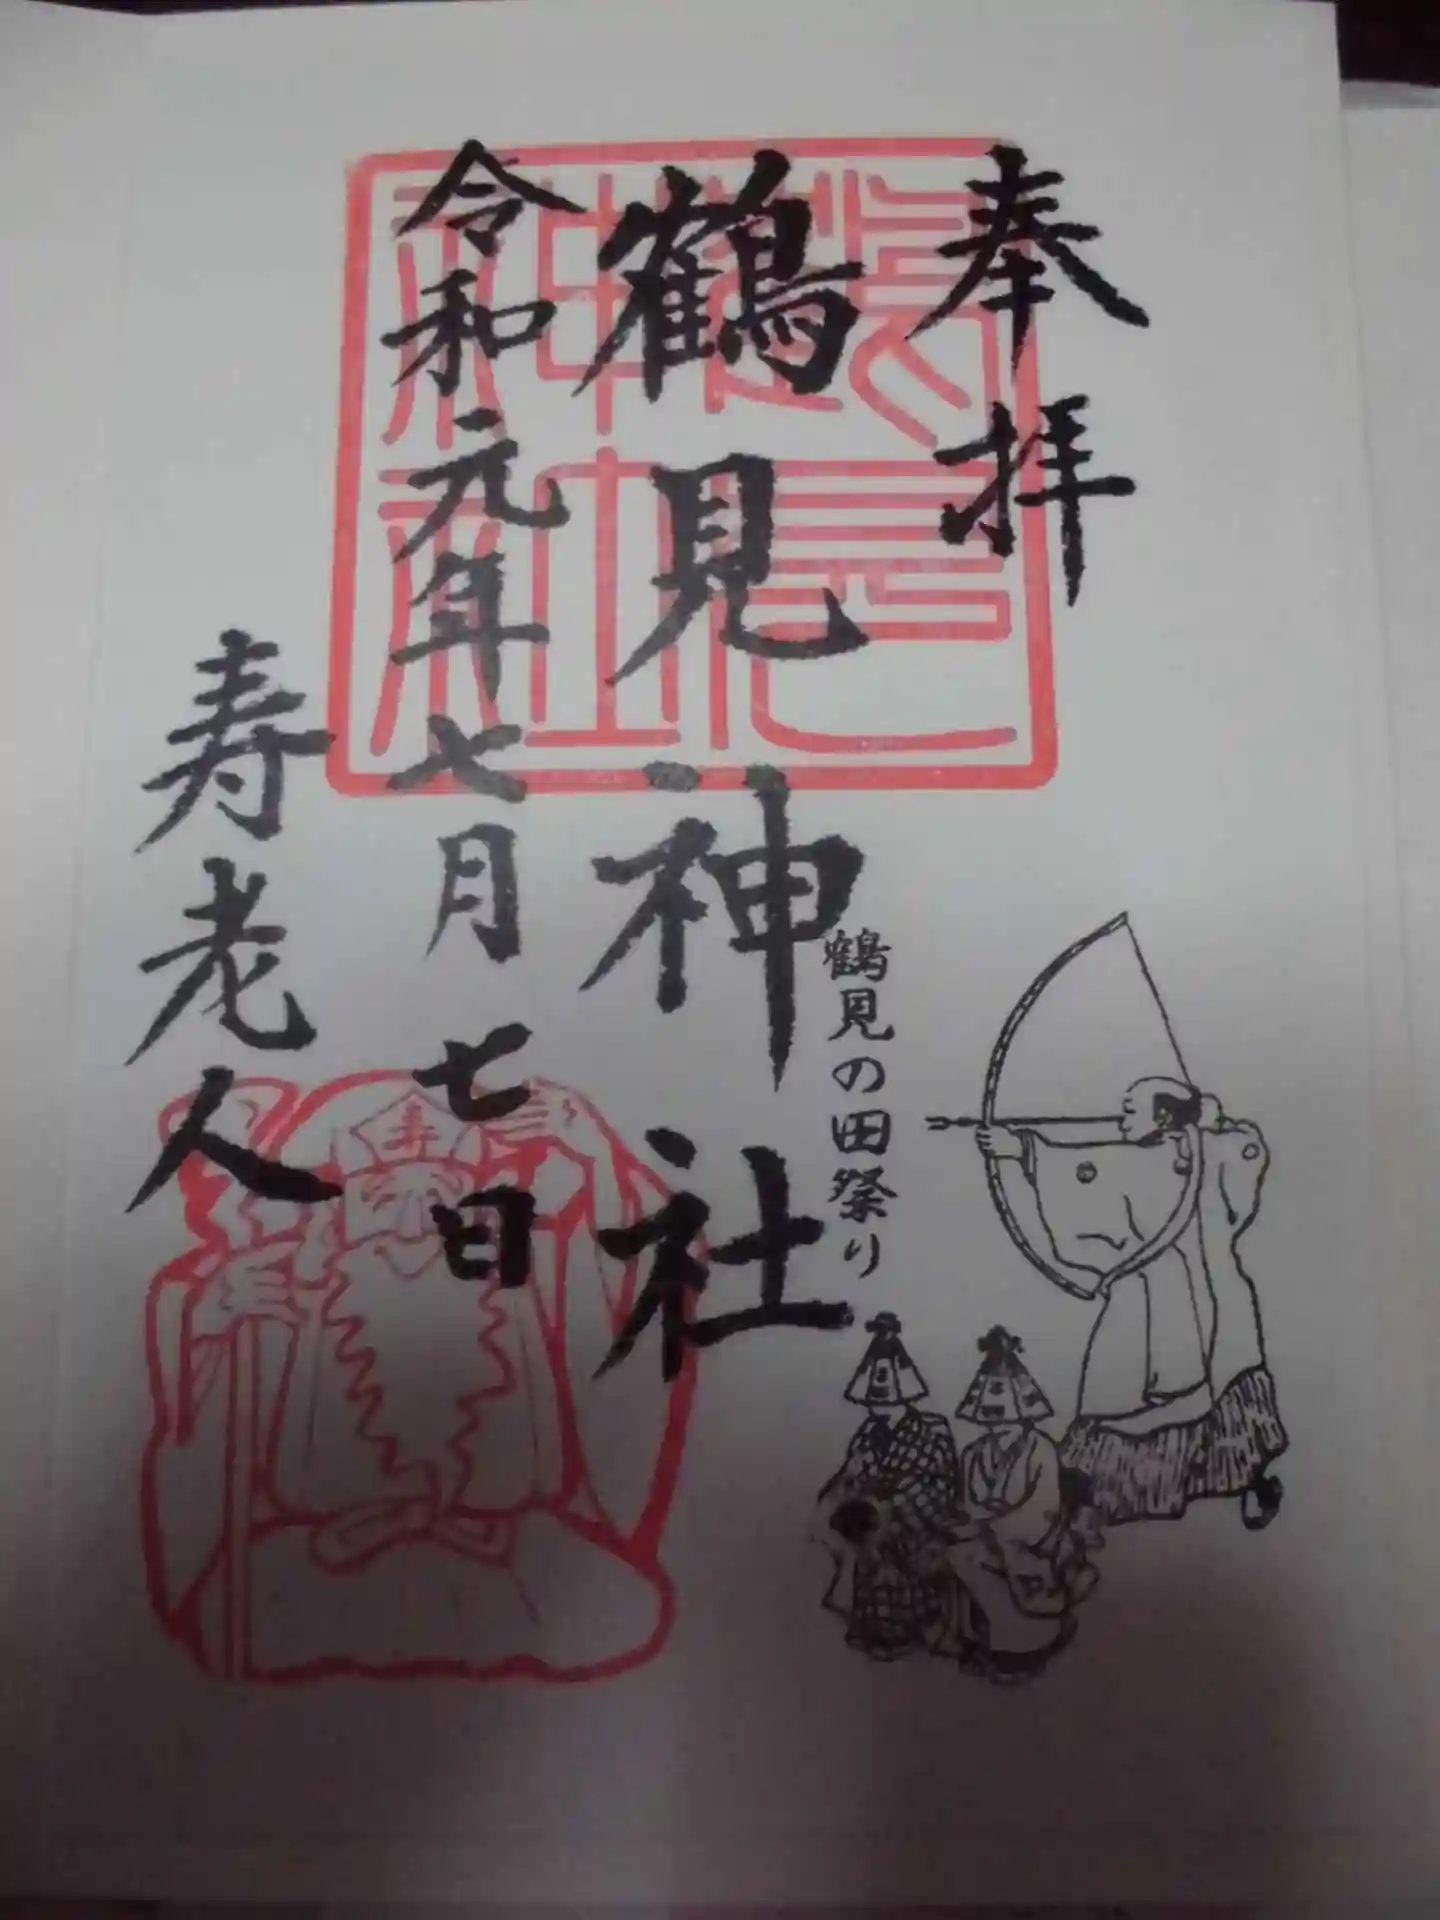 奉拝
鶴見神社
鶴見神社
令和元年七月七日
寿老人
寿
鶴見の田祭り